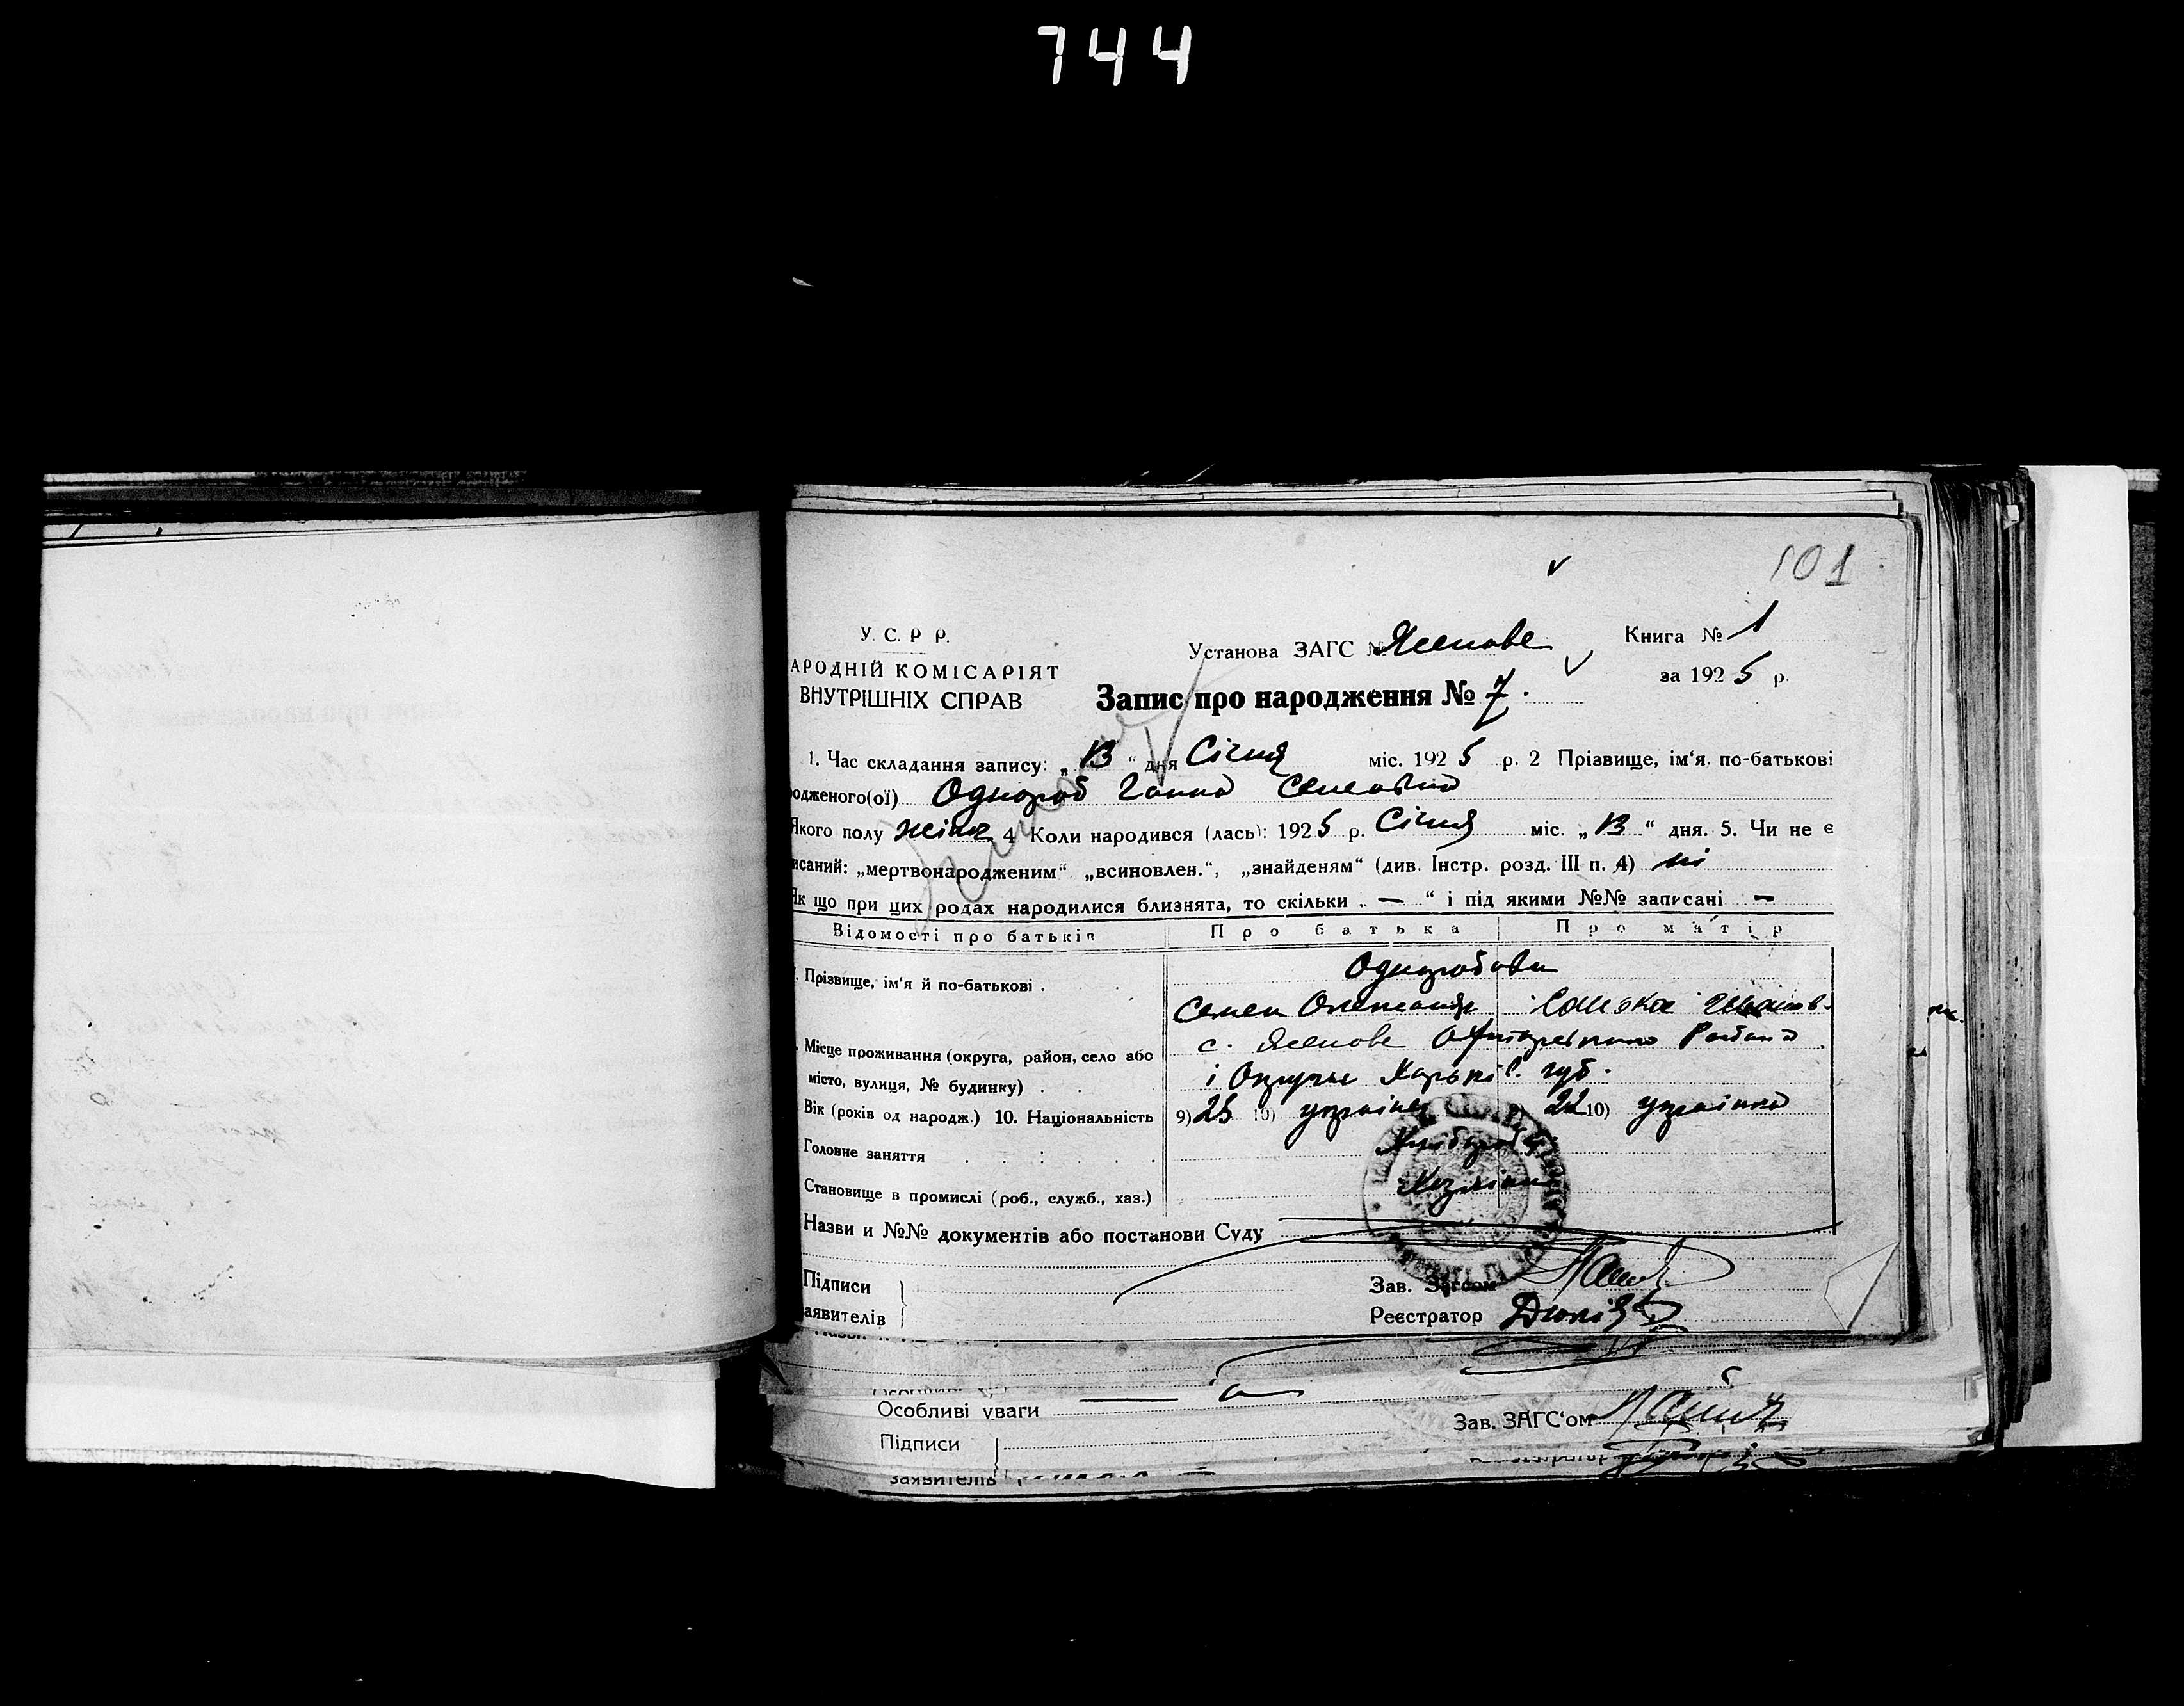 744
101
У. С. Р Р.
АРОДНІЙ КОМІСАРІЯТ
ВНУТРІШНІХ СПРАВ
Установа ЗАГС № Ясенове
Книга № 1
за 1925 р.
Запис про народження № 7.
1. Час складання запису: „13“ дня Січня міс. 1925 р. 2 Прізвище, ім'я. по-батькові
одженого(ої) Однороб Ганна Семенівна
Якого полу жіноч 4 Коли народився (лась): 1925 р. Січня міс. „13“ дня. 5. Чи не є
исаний: „мертвонародженим“ „всиновлен.“, „знайденям“ (див. Інстр. розд. III п. 4) ні
Як що при цих родах народилися близнята, то скільки „ — “ і під якими №№ записані —
Відомості про батьків Про батька Про матір
Прізвище, ім'я й по-батькові . Одноробови
Семен Олександр
Місце проживання (округа, район, село або с. Ясенове Района
місто, вулиця, № будинку) . і Округи Харьків. губ.
Вік (років од народж.) 10. Національність 9) 25 10) україн 22 10) українка
Головне заняття Хлібороби
Становище в промислі (роб., служб., хаз.)
Назви и №№ документів або постанови Суду
Підписи
аявителів
Зав. Загсом
Реєстратор
Особливі уваги
Підписи
Зав. ЗАГС'ом
заявителів